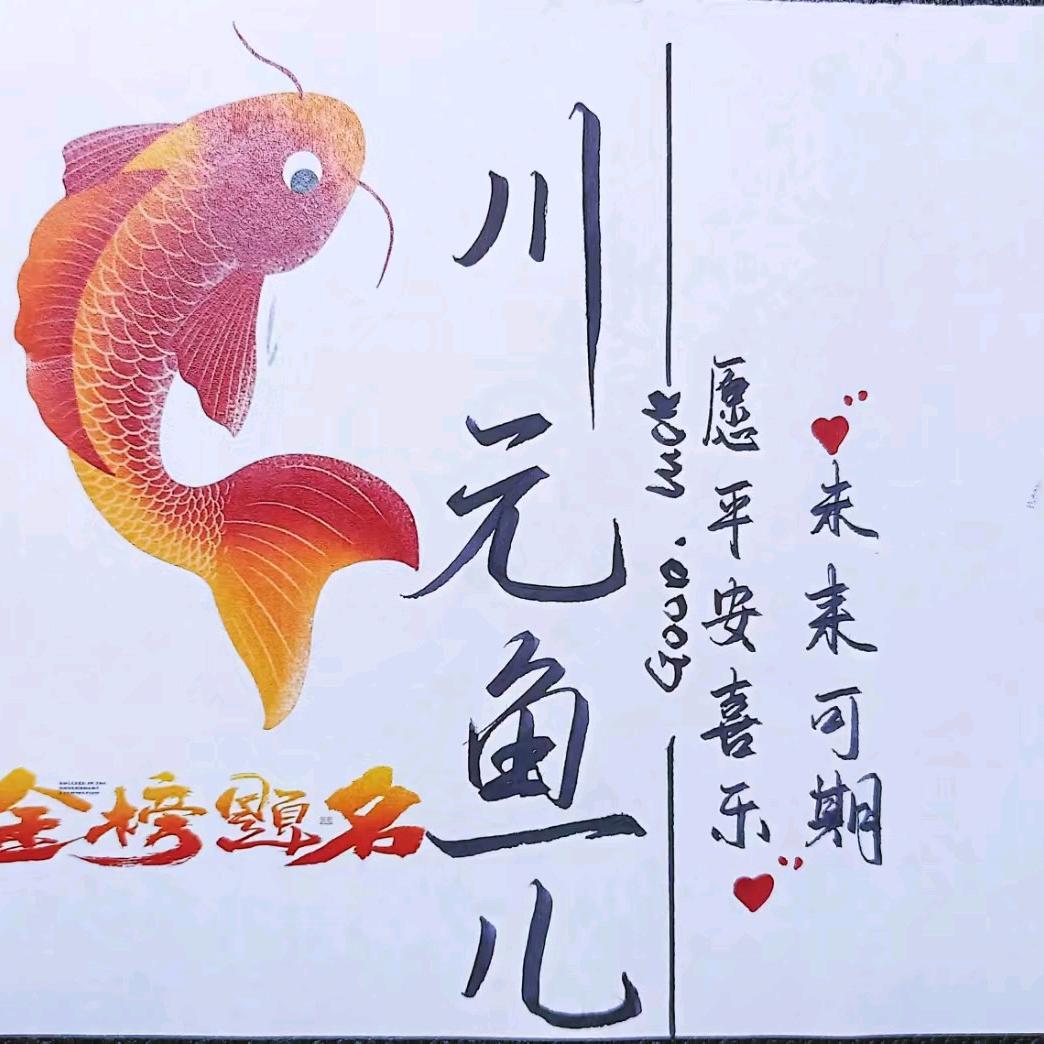 川元鱼儿
Good.
愿平安喜乐
未来可期
金榜题名